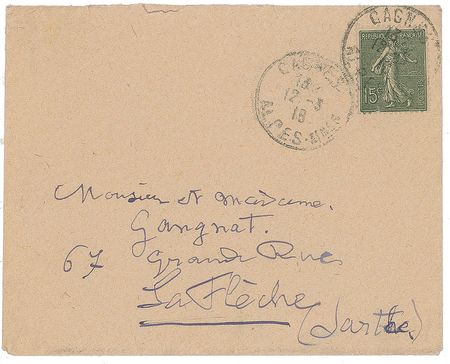 CAGNES
REPUBLIQUE FRANÇAISE
15c
CAGNES
12 -3
18
ALPES-MMES
Monsieur et madame.
Gangnat.
67 Grande Rue
La Flèche
(Sarthe.